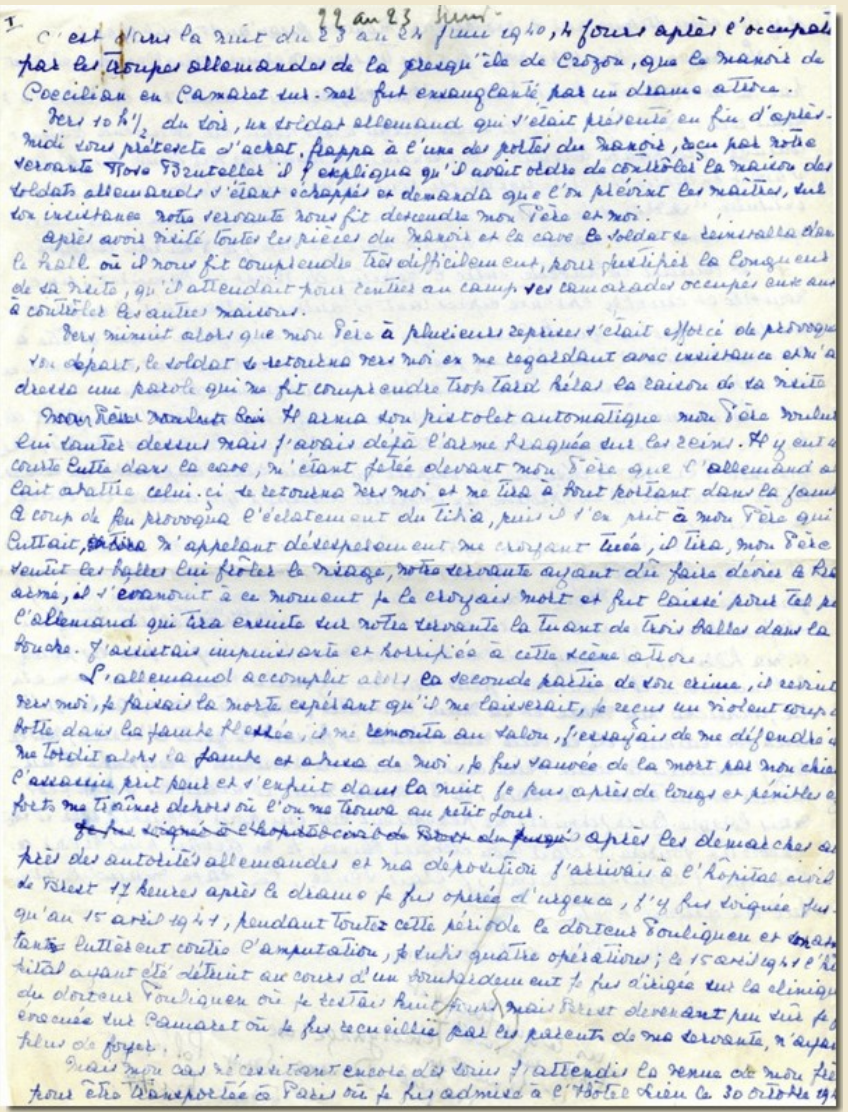 I
22 au 23 Juin
C'est dans la nuit du 23 au 24 Juin 1940, 4 jours après l'occupati
par les troupes allemandes de la presqu'île de Crozon, que le manoir de
Coecilian en Camaret sur-mer fut ensanglanté par un drame atroce.
Vers 10 h 1/2 du soir, un soldat allemand qui s'était présenté en fin d'après-
midi sous prétexte d'achat, frappa à l'une des portes du manoir, reçu par notre
servante Rose Bruteller il expliqua qu'il avait ordre de contrôler la maison des
soldats allemands s'étant échappés et demanda que l'on prévint les maîtres, sur
son insistance notre servante nous fit descendre mon Père et moi.
Après avoir visité toutes les pièces du manoir et la cave le soldat se réinstalla dan
le hall où il nous fit comprendre très difficilement, pour justifier la longueur
de sa visite, qu'il attendait pour rentrer au camp ses camarades occupés eux aus
à contrôler les autres maisons.
Vers minuit alors que mon Père à plusieurs reprises s'était efforcé de provoque
son départ, le soldat se retourna vers moi en me regardant avec insistance et m'a
dressa une parole qui me fit comprendre trop tard hélas la raison de sa visite
mon Père voulut lui Il arma son pistolet automatique mon Père voulut
lui sauter dessus mais j'avais déjà l'arme braquée sur les reins. Il y eut u
courte lutte dans la cave, m'étant jetée devant mon Père que l'allemand al
lait abattre celui-ci se retourna vers moi et me tira à bout portant dans la jam
Le coup de feu provoqua l'éclatement du tibia, puis il s'en prit à mon Père qui
luttait, m'appelant désespérement me croyant tuée, il tira, mon Père
sentit les balles lui frôler le visage, notre servante ayant dû faire dévier le bra
armé, il s'évanouit à ce moment je le croyais mort et fut laissé pour tel pa
l'allemand qui tira ensuite sur notre servante la tuant de trois balles dans la
bouche. J'assistais impuissante et horrifiée à cette scène atroce.
L'allemand accomplit alors la seconde partie de son crime, il revint
vers moi, je faisais la morte espérant qu'il me laisserait, je reçus un violent coup d
botte dans la jambe blessée, il me remonta au salon, j'essayais de me défendre
me tordit alors la jambe et abusa de moi, je fus sauvée de la mort par mon chien
l'assassin prit peur et s'enfuit dans la nuit. Je pus après de longs et pénibles ef
forts me traîner dehors où l'on me trouva au petit jour
Je fus soignée à l'hôpital civil de Brest après les démarches au
près des autorités allemandes et ma déposition j'arrivais à l'hôpital civil
de Brest 17 heures après le drame je fus opérée d'urgence, j'y fus soignée jus-
qu'au 15 avril 1941, pendant toute cette période le docteur Pouliquen et son assis
tante luttèrent contre l'amputation, je subis quatre opérations ; le 15 avril 1941 l'hô
pital ayant été détruit au cours d'un bombardement je fus dirigée sur la clinique
du docteur Pouliquen où je restais huit jours mais Brest devenant peu sûr je f
évacuée sur Camaret où je fus recueillie par les parents de ma servante, n'ayan
plus de foyer.
Mais mon cas nécessitant encore des soins j'attendis la venue de mon frè
pour être transportée à Paris où je fus admise à l'Hôtel Dieu le 30 octobre 194